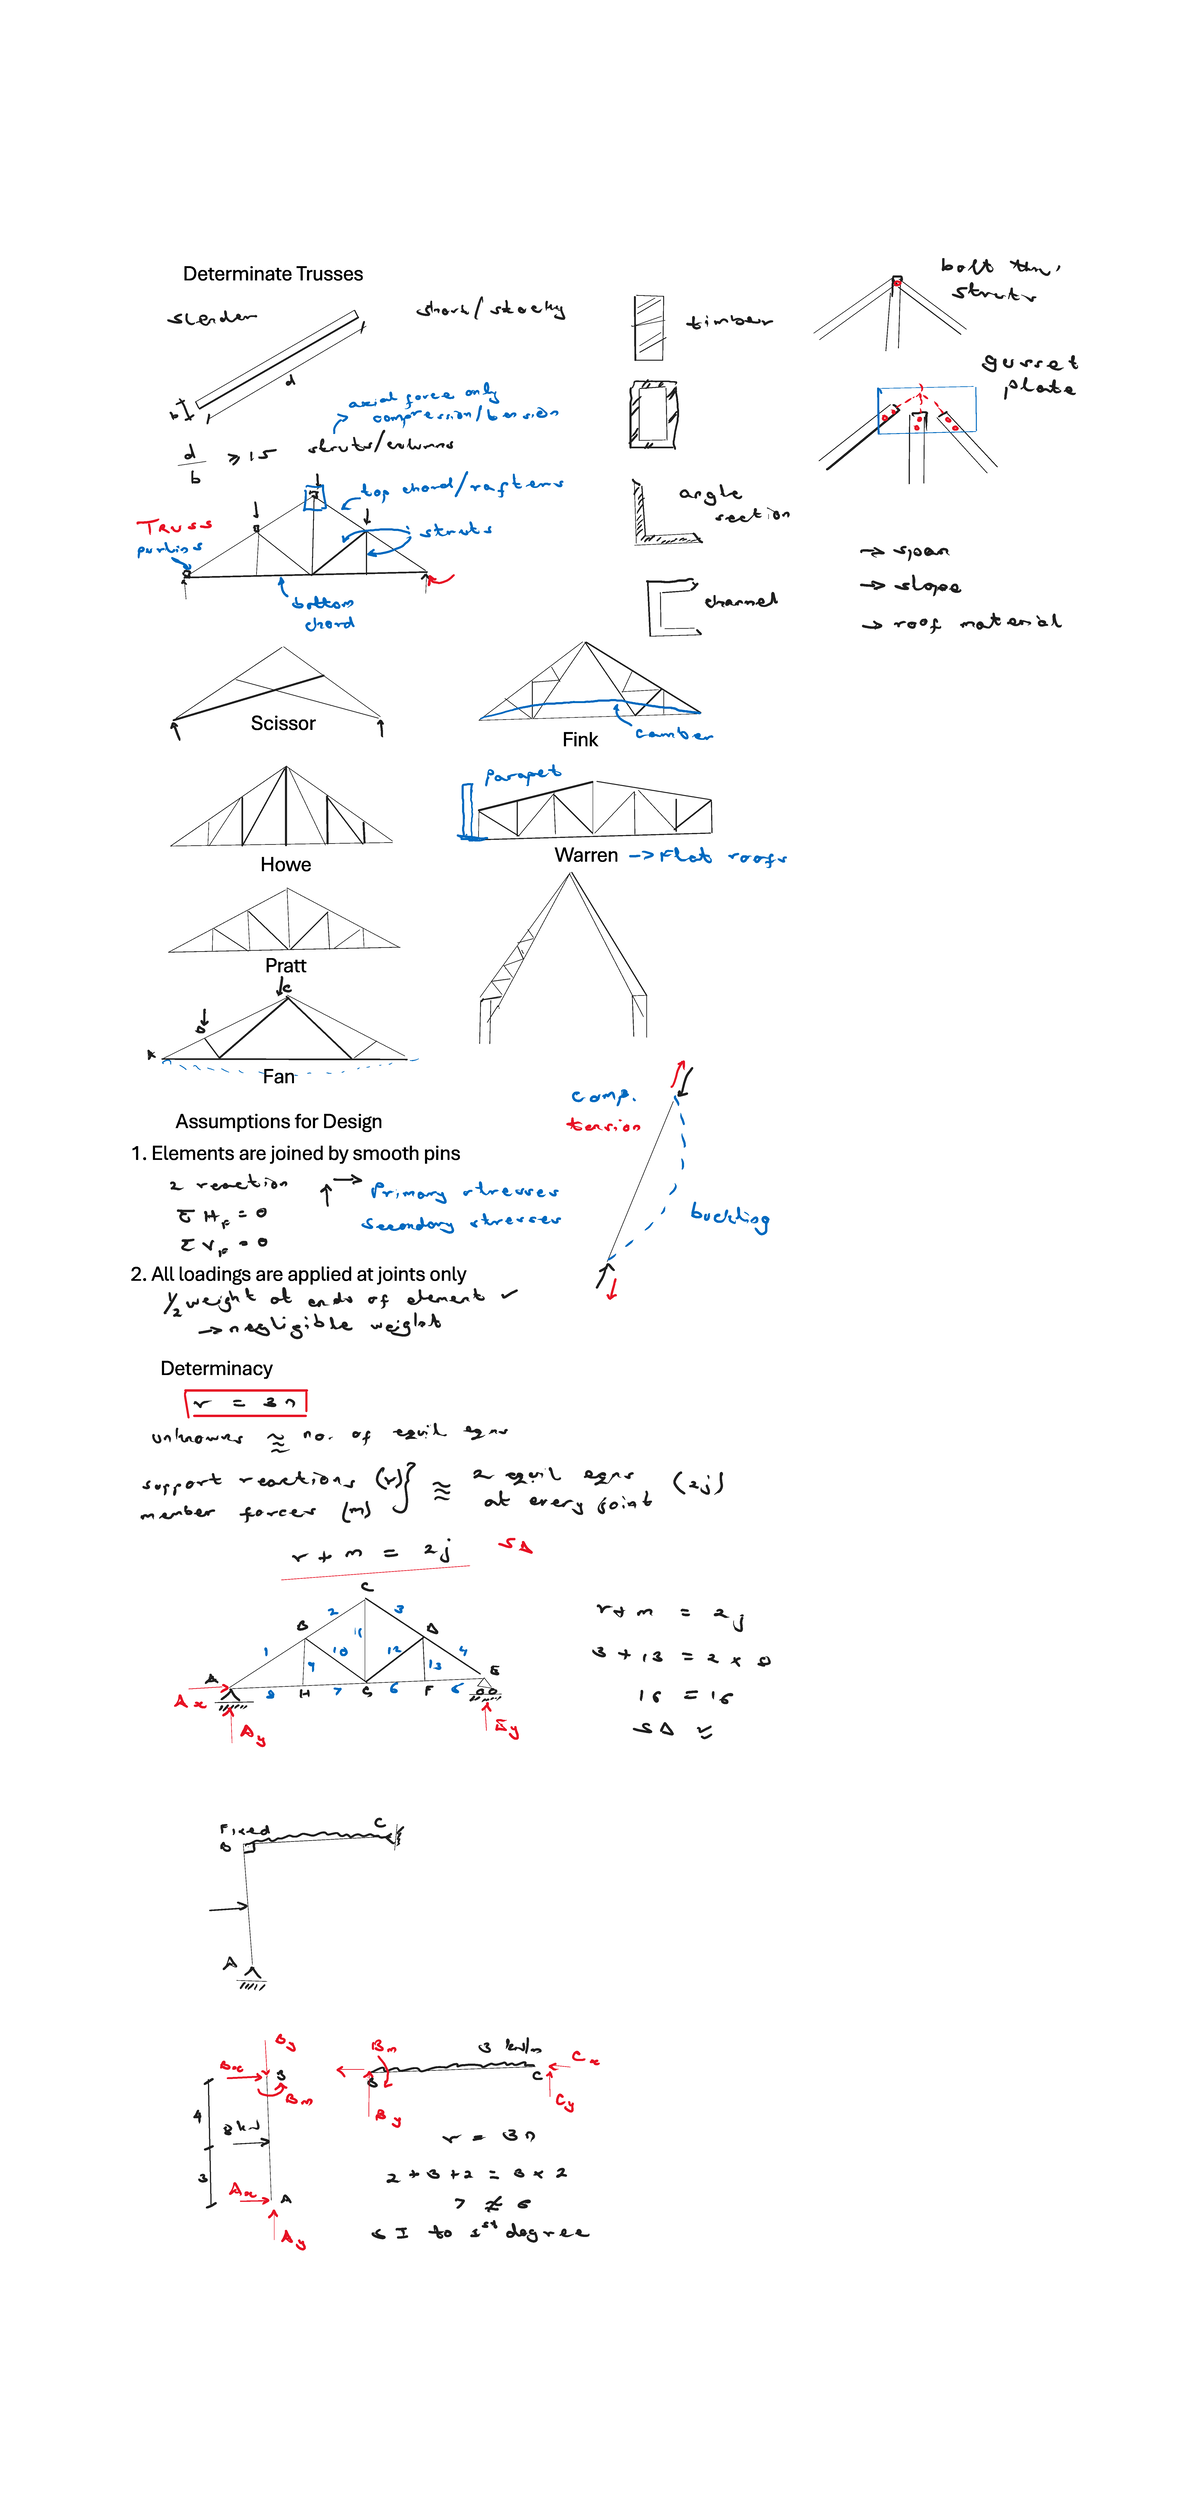 Determinate Trusses
slender
short/stocky
d
b
d
b
≥ 15
axial force only
compression/tension
struts/columns
top chord/rafters
struts
Truss
purlins
bottom
chord
timber
angle
section
channel
bolt thru'
struts
gusset
plate
→ span
→ slope
→ roof material
Scissor
Fink
camber
Howe
Parapet
Warren → Flat roofs
Pratt
C
B
A
Fan
comp.
tension
buckling
Assumptions for Design
1. Elements are joined by smooth pins
2 reaction
Primary stresses
Secondary stresses
Σ H_F = 0
Σ V_F = 0
2. All loadings are applied at joints only
1/2 weight at ends of element ✓
→ negligible weight
Determinacy
r = 3n
unknowns ≈ no. of equil eqns
support reactions (r)
member forces (m)
≈ 2 equil eqns (2j)
at every joint
r + m = 2j SD
C
2 3
B D
1 11 4
10 12
9 13
A E
8 H 7 G 6 F 6
Ax
Ay
Ey
r + m = 2j
3 + 13 = 2 × 8
16 = 16
SD
Fixed
B C
A
By
Bx B
Bm
4
8 kN
3
Ax A
Ay
Bm 3 kN/m
Cx
B C
Cy
By
r = 3n
2 + 3 + 2 = 3 × 2
7 ≠ 6
SI to 1st degree